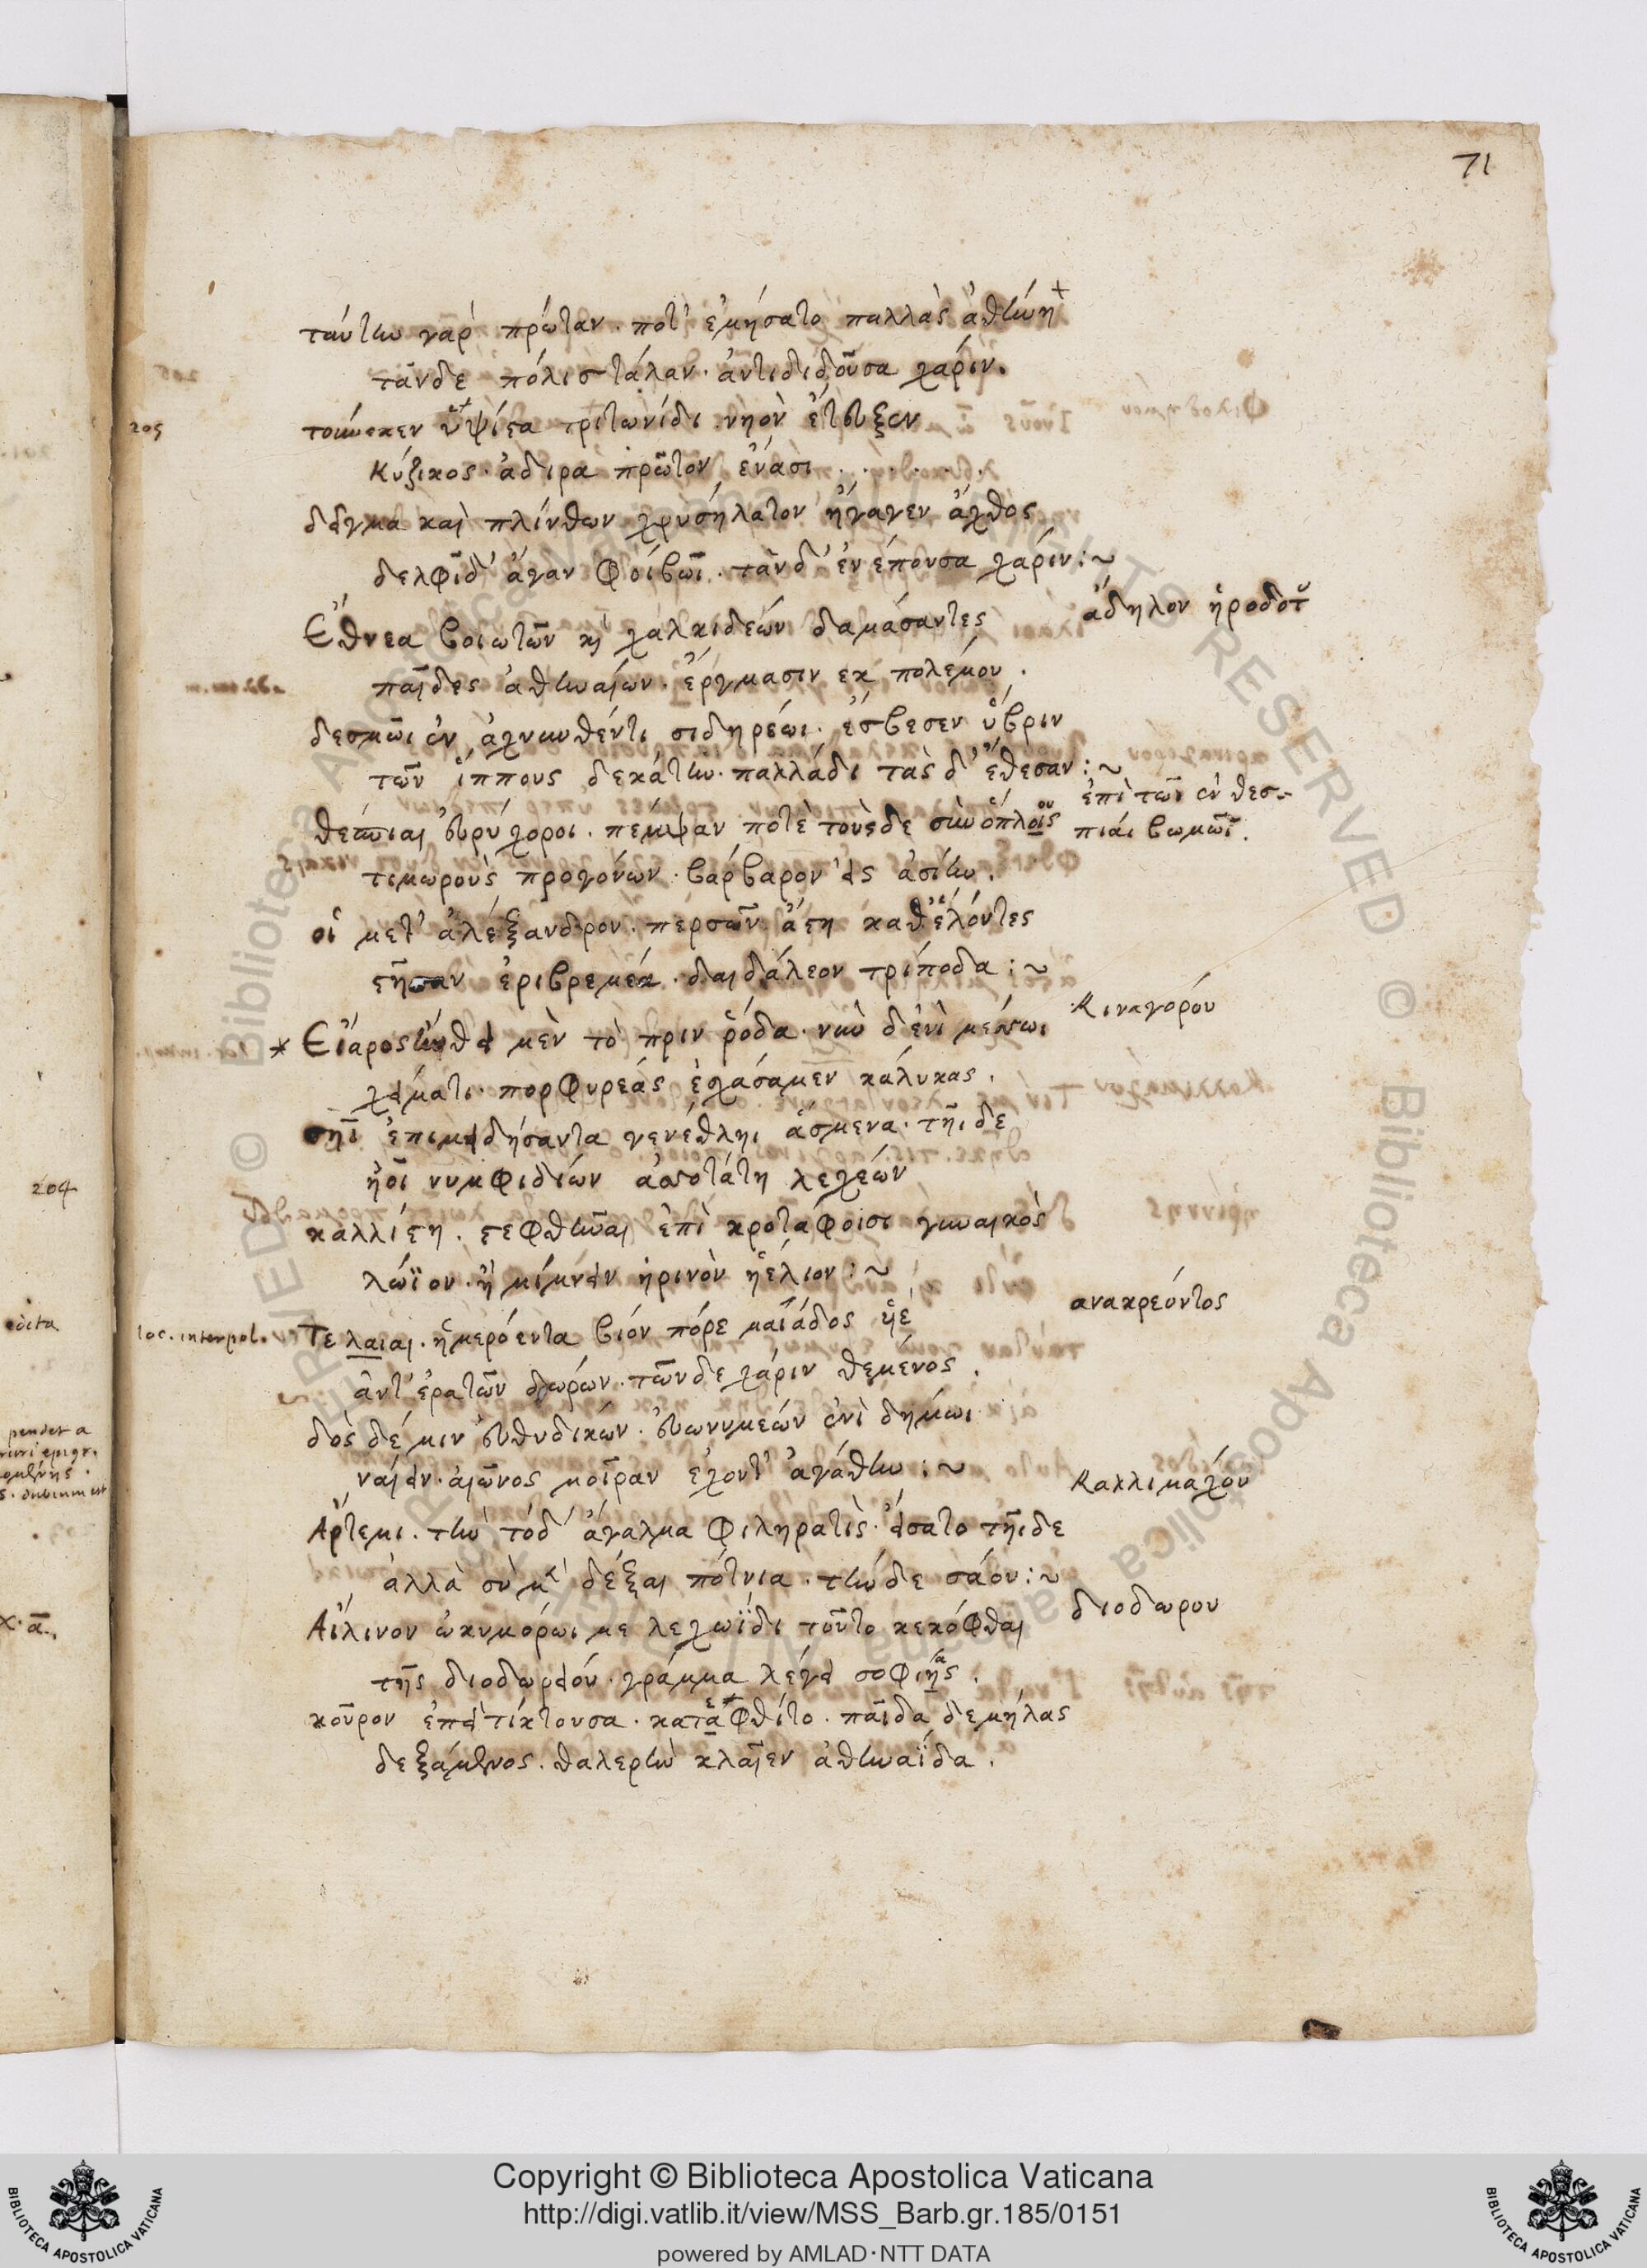 71
ταύτην γαρ πρώταν · ποτ' ἐμήσατο παλλὰς ἀθήνη
τάνδε πόλις τάλαν · ἀντιδιδοῦσα χάριν.
205
τοὔνεκεν ὑψίεα τριτωνίδι νηὸν ἔτευξεν
κύζικος · ἁδιρα πρῶτον ἐνάσι . . . . . .
δεῖγμα καὶ πλίνθων χρυσήλατον ἤγαγεν ἄχθος
δελφίδ' ἄγαν φοίβωι · τὰν δ' ἐνέπουσα χάριν :~
Ἔθνεα βοιωτῶν κὶ χαλκιδεών δαμάσαντες
ἄδηλον ἡροδοτου
παῖδες ἀθηναίων · ἔργμασιν εκ πολέμου ·
δεσμῶι ἐν ἀχνυνθέντι σιδηρέωι · ἔσβεσεν ὕβριν
τῶν ἵππους δεκάτην · παλλάδι τὰς δ' ἔθεσαν :~
ἐπὶ τῶι ἐν θεσ-
πιάι βωμῶι.
θεσπιαὶ εὐρύχοροι · πέμψαν ποτὲ τούσδε σὺν ὅπλοις
τιμωροὺς προγόνων · βάρβαρον εἰς ἀσίην.
οἱ μετ' ἀλέξανδρον · περσῶν ἄστη καθελόντες
στῆσαν ἐριβρεμέα · δαιδάλεον τρίποδα :~
* Εἴαρος ἤνθει μὲν τὸ πριν ῥόδα · νῦν δ' ἐνὶ μέσωι
Κιναγόρου
χείματι · πορφυρέας ἐχάσαμεν κάλυκας .
σῆι ἐπιμειδήσαντα γενέθληι ἄσμενα · τῆιδε
ἠοῖ νυμφιδίων ἀσοτάτη λεχέων
καλλίστη . στεφθῆναι ἐπὶ κροτάφοισι γυναικὸς
λώϊον · ἢ μίμνειν ἠρινὸν ἠέλιον :~
ανακρεόντος
loc. interpol.
Τε λαιαι · ἡμερόεντα βιόν πόρε μαιάδος υἱε
ἀντ' ἐρατῶν δώρων · τῶνδε χάριν θέμενος .
δὸς δέ μιν εὐθυδίκων · εὐωνυμέων ἐνὶ δήμωι
ναίειν · αἰῶνος μοῖραν ἔχοντ' ἀγάθην :~
Καλλιμαχόυ
Ἄρτεμι . τὶν τόδ' ἄγαλμα φιληρατὶς · εἵσατο τῆιδε
ἀλλὰ σὺ μὲ δέξαι πότνια · τὴν δε σάου :~
Αἴλινον ὠκυμόρωι με λεχωΐδι τοῦτο κεκόφθαι
διοδωρου
τῆς διοδωρείου · γράμμα λέγει σοφιης .
κοῦρον ἐπεὶ τίκτουσα · καταφθίτο . παῖδα δε μήλας
δεξάμενος . θαλερὴν κλαῖεν ἀθηναΐδα .
204
edita
pendet a
χ. α.
Copyright © Biblioteca Apostolica Vaticana
http://digi.vatlib.it/view/MSS_Barb.gr.185/0151
powered by AMLAD·NTT DATA
BIBLIOTECA APOSTOLICA VATICANA
BIBLIOTECA APOSTOLICA VATICANA